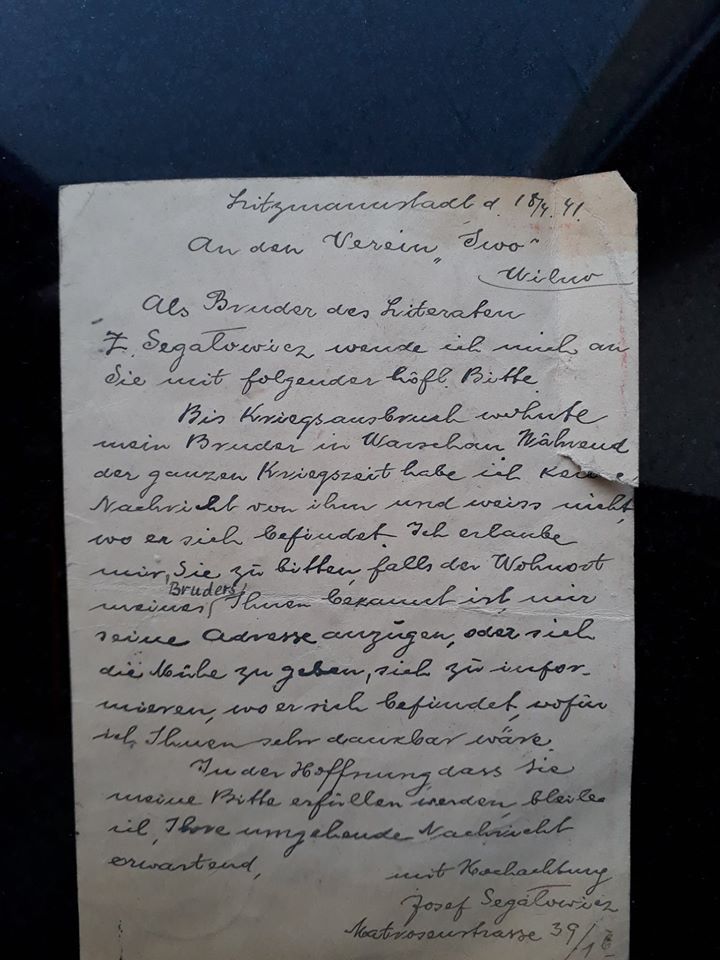 Litzmannstadt d. 18/4. 41.
An den Verein „Iwo"
Wilno
Als Bruder des Literaten
Z. Segałowicz wende ich mich an
Sie mit folgender höfl. Bitte.
Bis Kriegsausbruch wohnte
mein Bruder in Warschau. Während
der ganzen Kriegszeit habe ich keine
Nachricht von ihm und weiss nicht,
wo er sich befindet. Ich erlaube
mir, Sie zu bitten, falls der Wohnort
Bruders
meines Ihnen bekannt ist, mir
seine Adresse anzugen, oder sich
die Mühe zu geben, sich zu infor-
mieren, wo er sich befindet, wofür
ich Ihnen sehr dankbar wäre.
In der Hoffnung, dass Sie
meine Bitte erfüllen werden, bleibe
ich, Ihre umgehende Nachricht
erwartend,
mit Hochachtung
Josef Segałowicz
Matrosenstrasse 39/